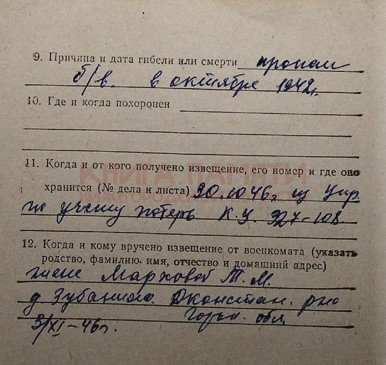 9. Причина и дата гибели или смерти пропал
б/в. в октябре 1942г.
10. Где и когда похоронен
КНИГА ПАМЯТИ
11. Когда и от кого получено извещение, его номер и где оно
хранится (№ дела и листа) 30.10 46г из Упр.
по учету потерь К.У. 927-108
12. Когда и кому вручено извещение от военкомата (указать
родство, фамилию, имя, отчество и домашний адрес)
жене Марховой Т. М.
д Зубанило Дконстан. рно
Горьк. обл
3/XI-46г.